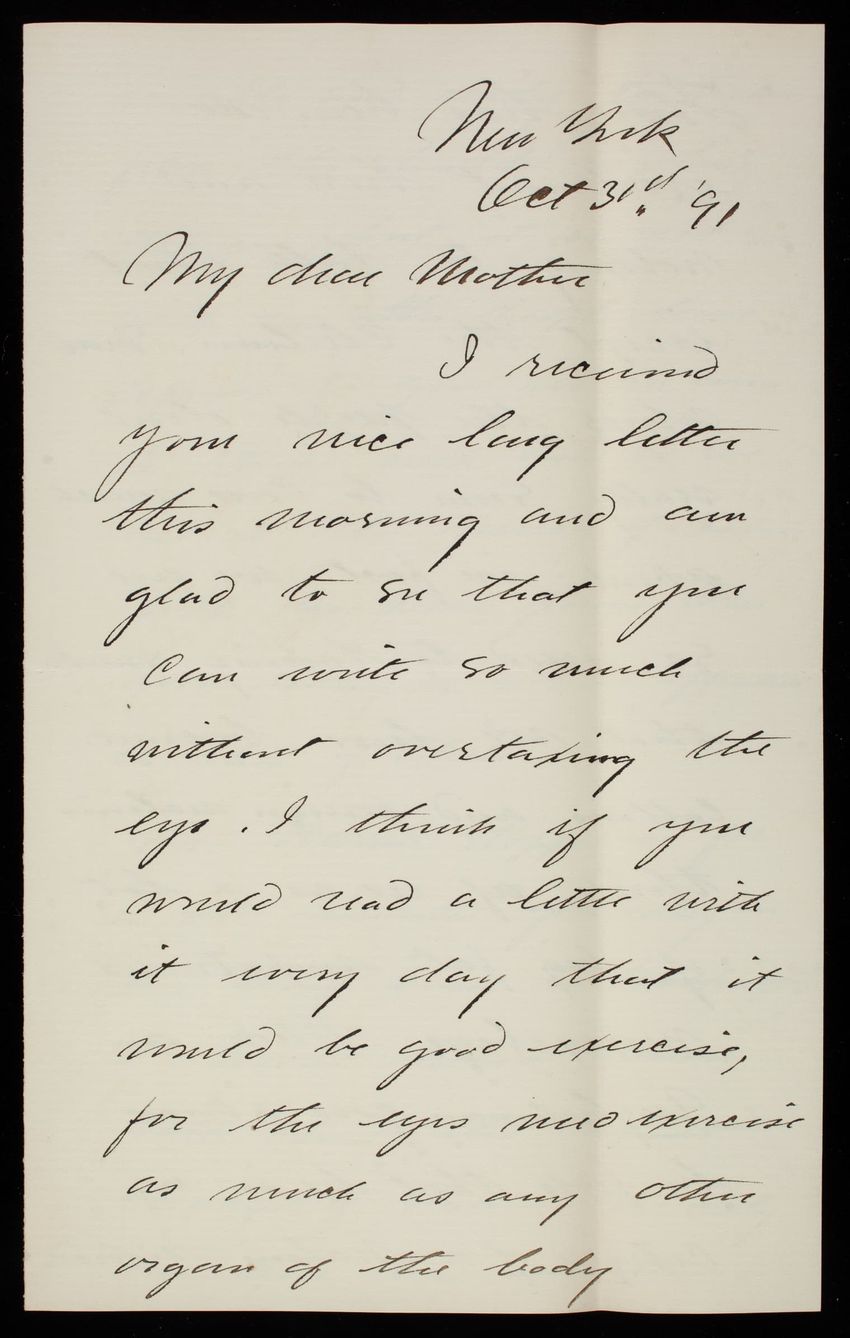 New York
Oct 31st '91
My dear Mother
I received
your nice long letter
this morning and am
glad to see that you
can write so much
without overtaxing the
eye. I think if you
would read a little with
it every day that it
would be good exercise,
for the eyes need exercise
as much as any other
organ of the body